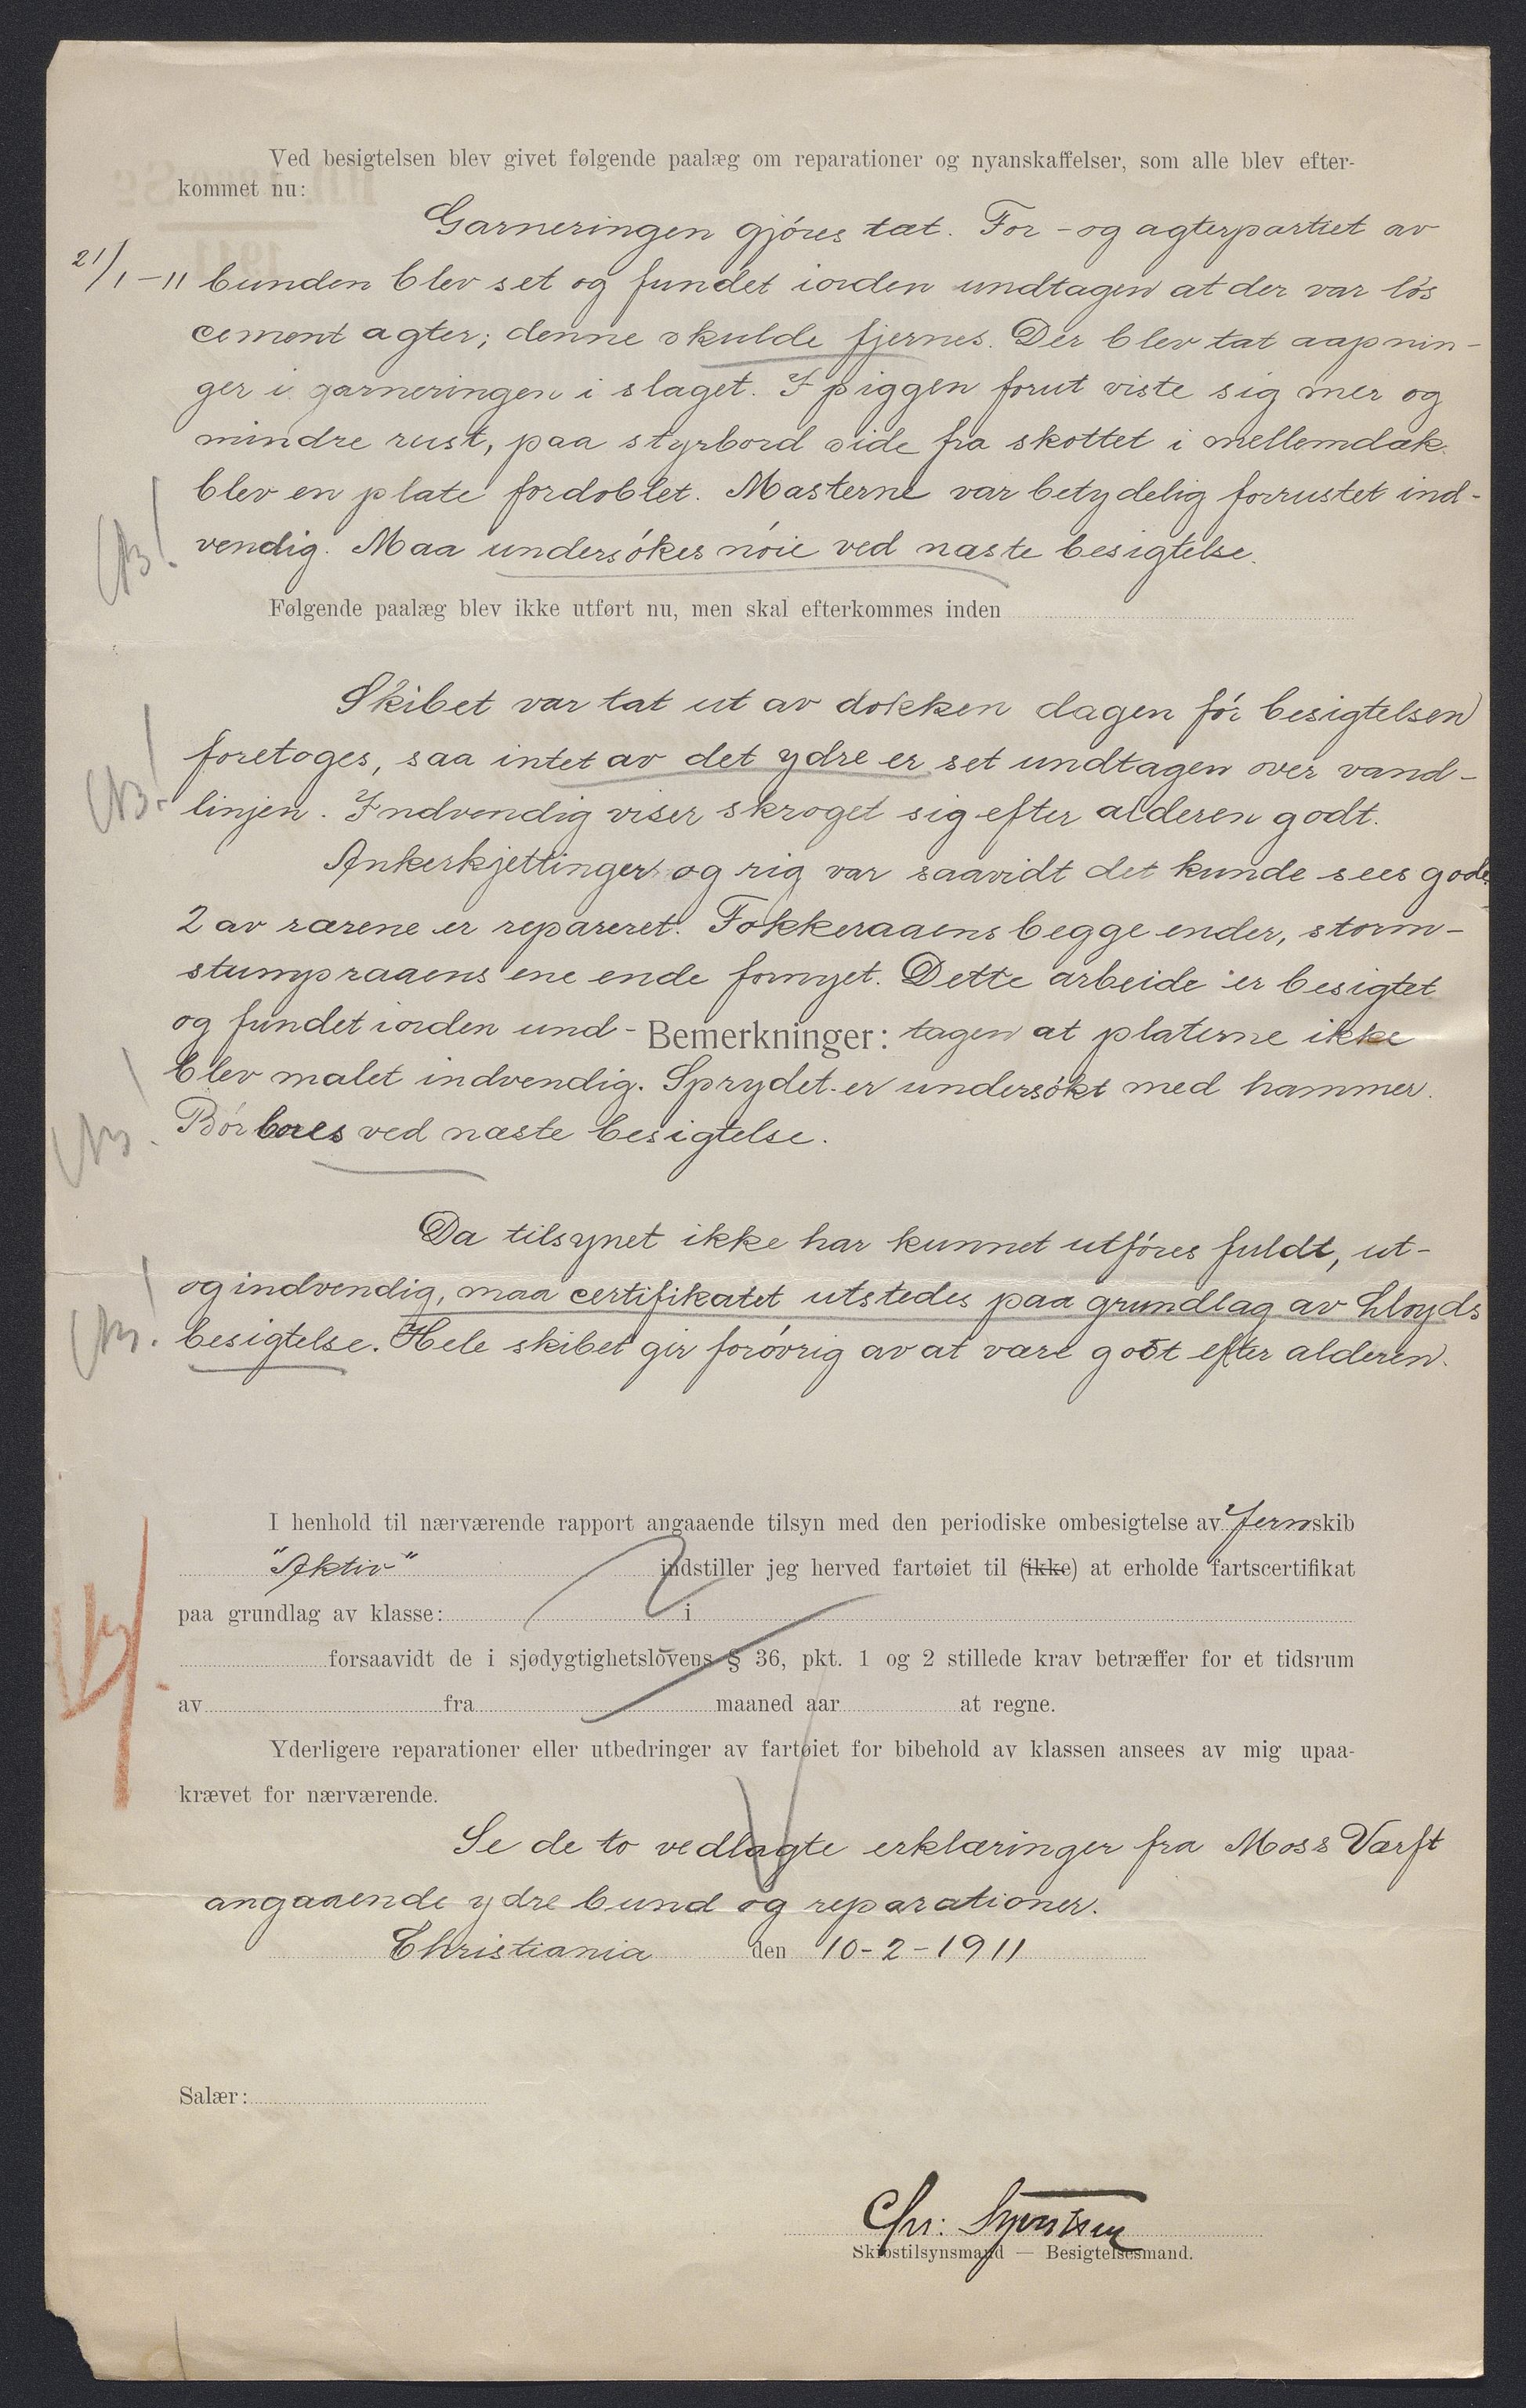 Ved besigtelsen blev givet følgende paalæg om reparationer og nyanskaffelser, som alle blev efter-
kommet nu:
Garneringen gjöres tæt. For- og agterpartiet av
21/1-11 bunden blev set og fundet iorden undtagen at der var lös
cement agter; denne skulde fjernes. Der blev tat aapnin-
ger i garneringen i slaget. I piggen forut viste sig mer og
mindre rust, paa styrbord side fra skottet i mellemdæk
blev en plate fordoblet. Masterne var betydelig forrustet ind-
NB! vendig. Maa undersökes nöie ved næste besigtelse.
Følgende paalæg blev ikke utført nu, men skal efterkommes inden
Skibet var tat ut av dokken dagen för besigtelsen
foretoges, saa intet av det ydre er set undtagen over vand-
NB! linjen. Indvendig viser skroget sig efter alderen godt.
Ankerkjettinger og rig var saavidt det kunde sees gode.
2 av rærene er repareret. Fokkeraaens begge ender, storm-
stumpraaens ene ende fornyet. Dette arbeide er besigtet
og fundet iorden und- Bemerkninger: tagen at platerne ikke
blev malet indvendig. Sprydet er undersökt med hammer.
NB! Bör bores ved næste besigtelse.
Da tilsynet ikke har kunnet utföres fuldt, ut-
og indvendig, maa certifikatet utstedes paa grundlag av Lloyds
NB! besigtelse. Hele skibet gir forövrig av at være godt efter alderen.
I henhold til nærværende rapport angaaende tilsyn med den periodiske ombesigtelse av Jernskib
"Aktiv" indstiller jeg herved fartøiet til (ikke) at erholde fartscertifikat
paa grundlag av klasse: i
forsaavidt de i sjødygtighetslovens § 36, pkt. 1 og 2 stillede krav betræffer for et tidsrum
av fra maaned aar at regne.
Yderligere reparationer eller utbedringer av fartøiet for bibehold av klassen ansees av mig upaa-
krævet for nærværende.
Se de to vedlagte erklæringer fra Moss Værft
angaaende ydre bund og reparationer.
Christiania den 10-2-1911
Salær:
Chr.
Skibstilsynsmand — Besigtelsesmand.